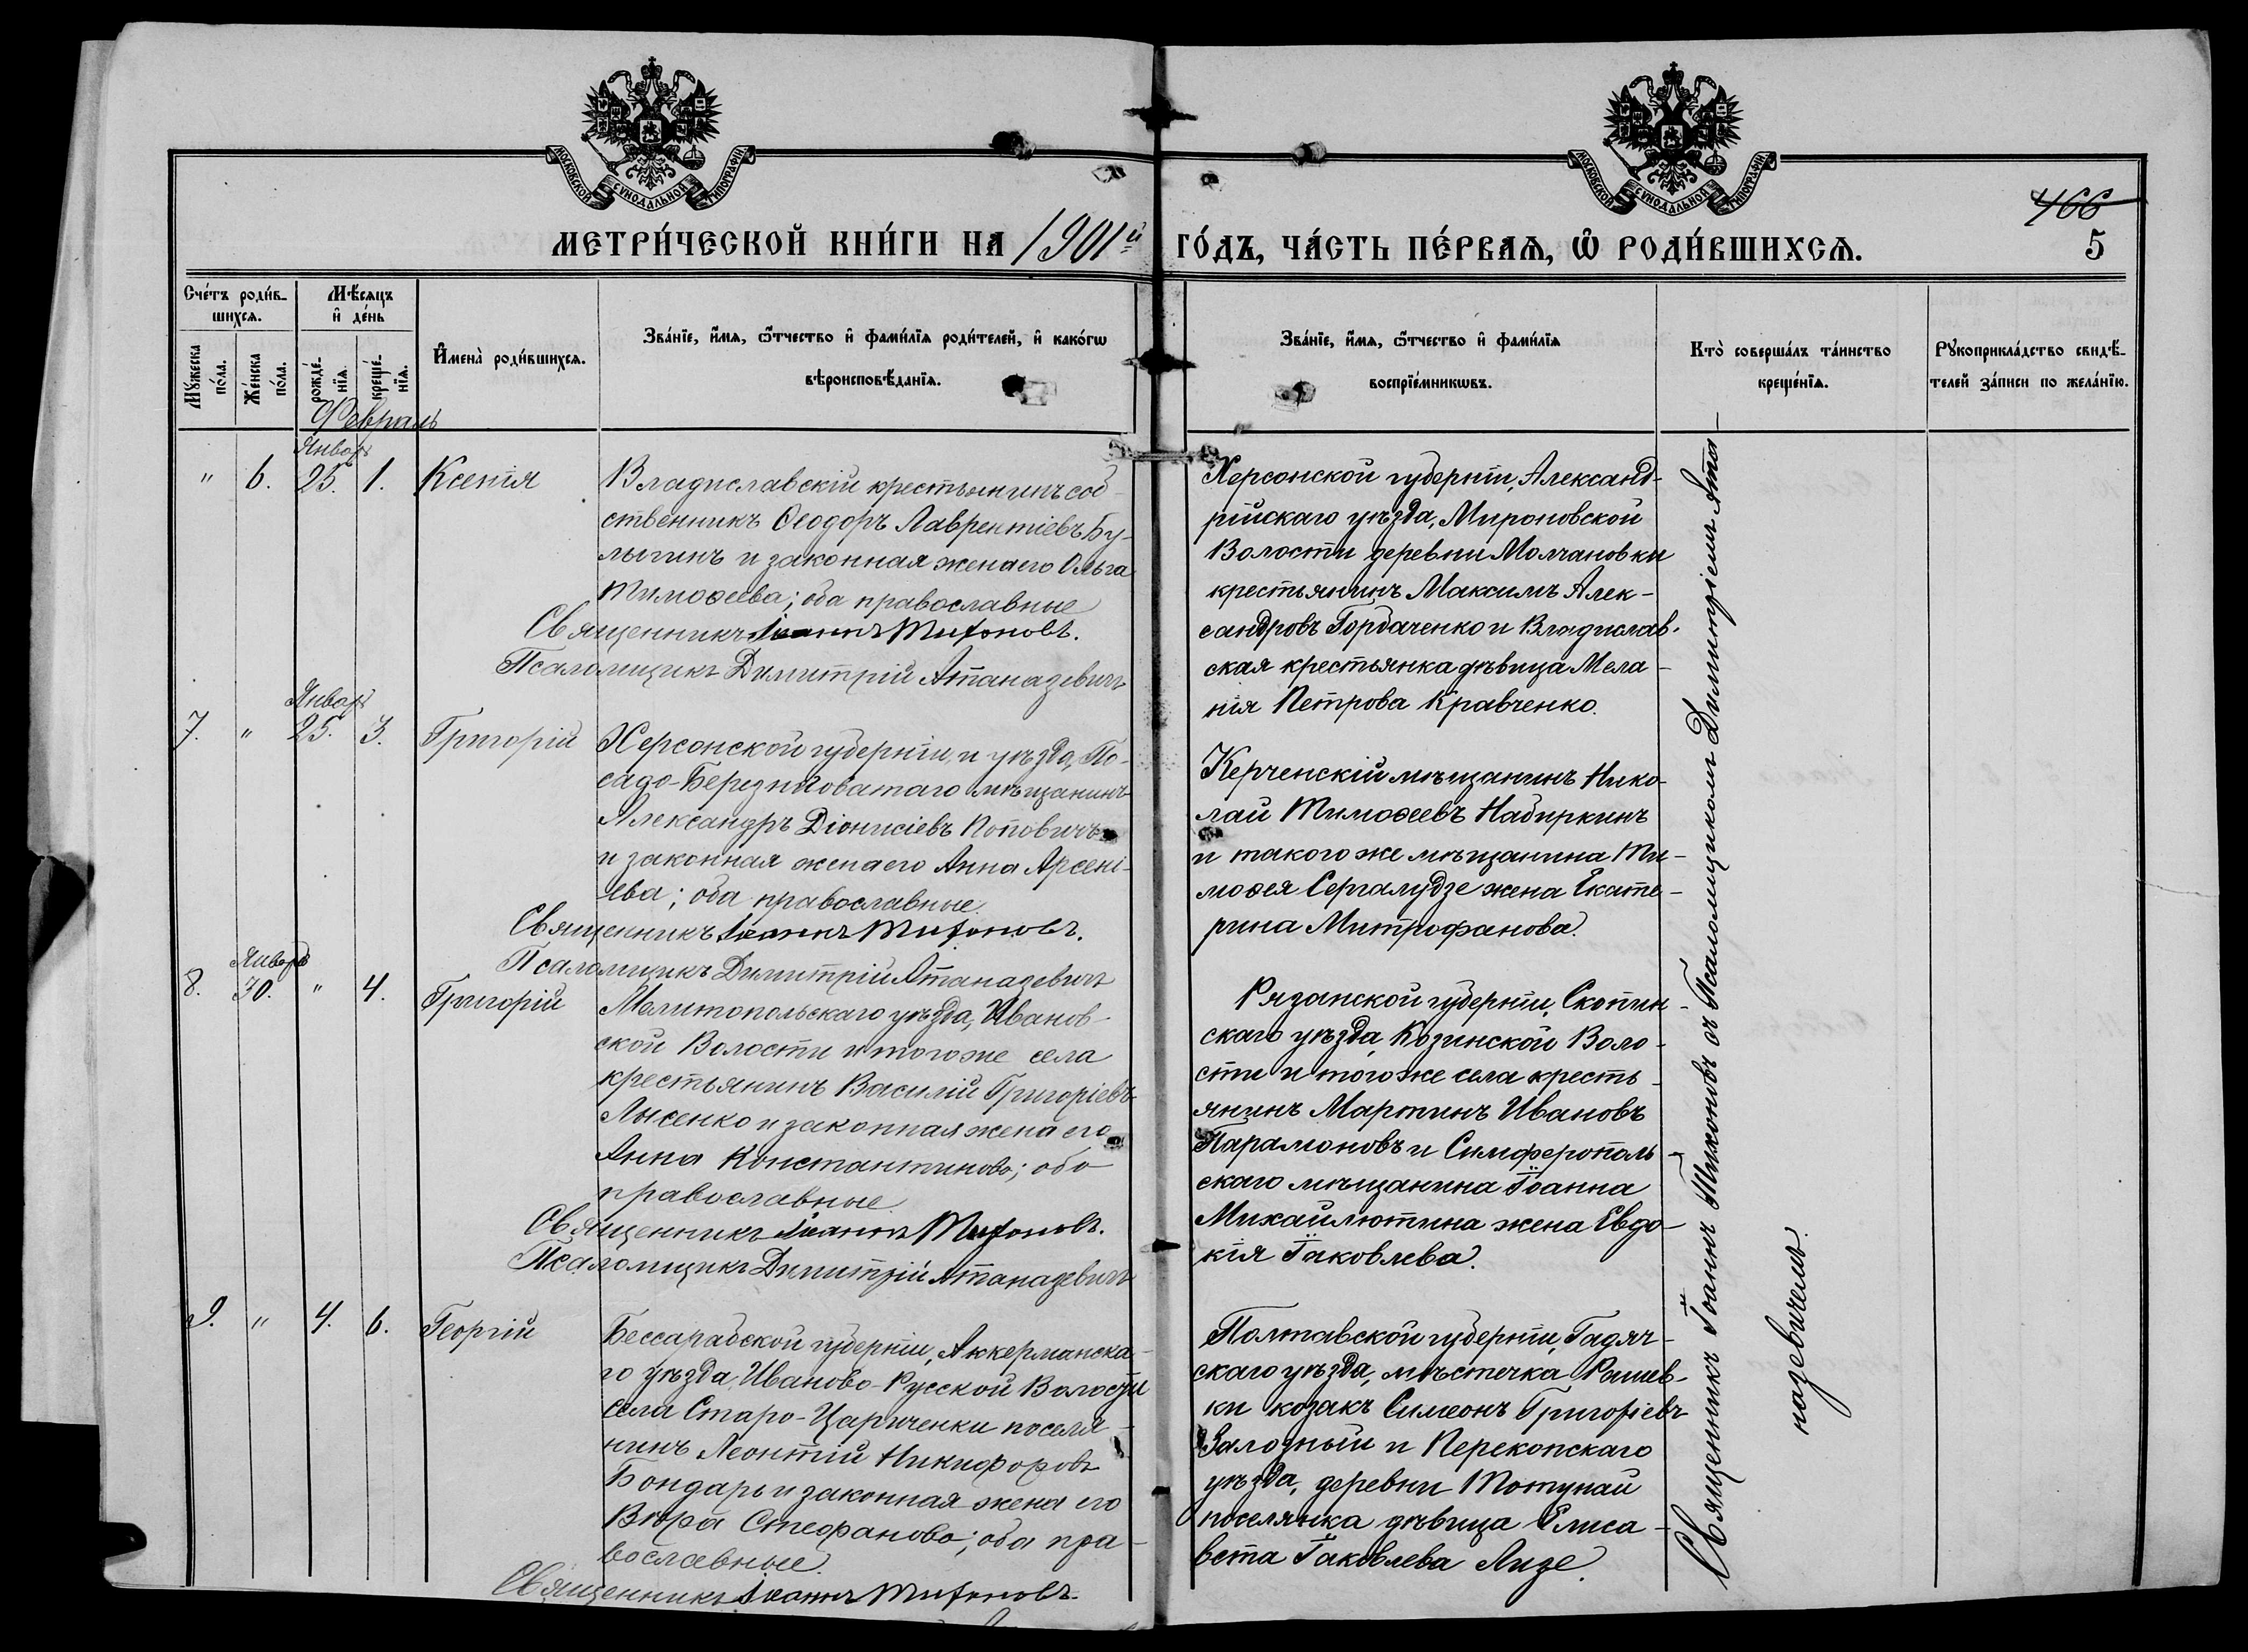 МОСКОВСКОЙ СѴНОДАЛЬНОЙ ТИПОГРАФІИ.
МОСКОВСКОЙ СѴНОДАЛЬНОЙ ТИПОГРАФІИ.
466
МЕТРИ́ЧЕСКОЙ КНИ́ГИ НА 1901й ГО́ДЪ, ЧА́СТЬ ПЕ́РВАѦ, Ѡ҆ РОДИ́ВШИХСѦ.
5
Сче́тъ роди́в-
шихсѧ.
Мѣ́сѧцъ
и҆ де́нь
Мꙋ́жеска
по́ла.
Же́нска
по́ла.
рожде́-
нїѧ.
креще́-
нїѧ.
И҆мена̀ роди́вшихсѧ.
Зва́нїе, и҆́мѧ, ѻ҆́тчество и҆ фами́лїѧ роди́телей, и҆ како́гѡ
вѣроисповѣ́данїѧ.
Зва́нїе, и҆́мѧ, ѻ҆́тчество и҆ фами́лїѧ
воспрїе́мникѡвъ.
Кто̀ соверша́лъ та́инство
креще́нїѧ.
Рꙋкоприкла́дство свидѣ́-
телей за́писи по жела́нїю.
Февраль
Январь
" 6. 25. 1. Ксенія
Владиславскій крестьянинъ соб-
ственникъ Ѳеодоръ Лаврентіевъ Бу-
лыгинъ и законная жена его Ольга
Тимоѳеева; оба православные
Священникъ Іоаннъ Тихоновъ.
Псаломщикъ Димитрій Атаназевичъ
Херсонской губерніи, Александ-
рійскаго уѣзда, Мироновской
Волости деревни Молчановки
крестьянинъ Максимъ Алек-
сандровъ Горбаченко и Владислав-
ская крестьянка дѣвица Мела-
нія Петрова Кравченко.
Январь
7. " 25. 3. Григорій
Херсонской губерніи, и уѣзда, По-
садо-Березниговатаго мѣщанинъ
Александръ Діонисіевъ Поповичъ
и законная жена его Анна Арсені-
ева; оба православные.
Священникъ Іоаннъ Тихоновъ.
Псаломщикъ Димитрій Атаназевичъ
Керченскій мѣщанинъ Нико-
лай Тимоѳеевъ Набиркинъ
и такого же мѣщанина Ти-
моѳея Сергалудзе жена Екате-
рина Митрофанова.
Январь
8. 30. " 4. Григорій
Мелитопольскаго уѣзда, Иванов-
ской Волости и того же села
крестьянинъ Василій Григоріевъ
Лысенко и законная жена его
Анна Константинова; оба
православные
Священникъ Іоаннъ Тихоновъ.
Псаломщикъ Димитрій Атаназевичъ
Рязанской губерніи, Скопин-
скаго уѣзда, Козинской Воло-
сти и того же села кресть-
янинъ Мартинъ Ивановъ
Парамоновъ и Симферополь-
скаго мѣщанина Іоанна
Михайлютина жена Евдо-
кія Іаковлева.
9. " 4. 6. Георгій
Бессарабской губерніи, Аккерманска-
го уѣзда, Иваново-Русской Волости
села Старо-Цариченки поселя-
нинъ Леонтій Никифоровъ
Бондарь и законная жена его
Вѣра Стефанова; оба пра-
вославные.
Священникъ Іоаннъ Тихоновъ.
Полтавской губерніи, Гадяч-
скаго уѣзда, мѣстечка Рашев-
ки козакъ Симеонъ Григоріевъ
Залозный и Перекопскаго
уѣзда, деревни Тотунай
поселянка дѣвица Елиса-
вета Іаковлева Лизе.
Священникъ Іоаннъ Тихоновъ съ Псаломщикомъ Димитріемъ Ата-
назевичемъ.